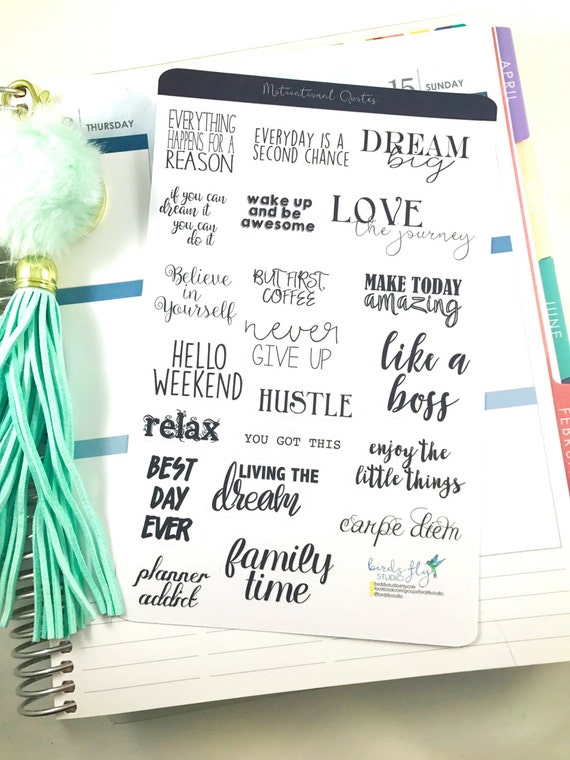 Motivational Quotes
15
SUNDAY
THURSDAY
APRIL
JUNE
EVERYTHING
HAPPENS FOR A
REASON
EVERYDAY IS A
SECOND CHANCE
DREAM
big
if you can
dream it
you can
do it
wake up
and be
awesome
LOVE
the journey
Believe
in
Yourself
BUT FIRST,
COFFEE
MAKE TODAY
amazing
never
GIVE UP
HELLO
WEEKEND
like a
boss
HUSTLE
relax
YOU GOT THIS
enjoy the
little things
BEST
DAY
EVER
LIVING THE
dream
carpe diem
planner
addict
family
time
STUDIO